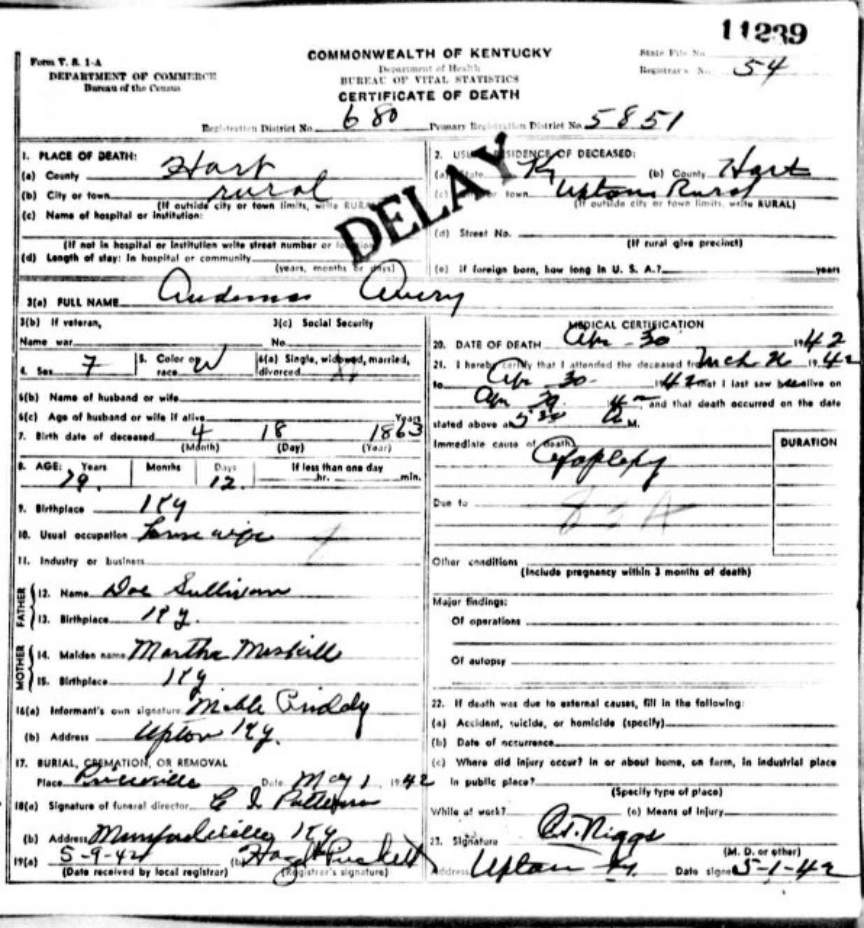 11239
Form V. S. 1-A
DEPARTMENT OF COMMERCE
Bureau of the Census
COMMONWEALTH OF KENTUCKY
Department of Health
BUREAU OF VITAL STATISTICS
CERTIFICATE OF DEATH
State File No.
Registrar's No. 54
Registration District No. 680 Primary Registration District No. 5851
DELAY
1. PLACE OF DEATH:
(a) County Hart
(b) City or town rural
(If outside city or town limits, write RURAL)
(c) Name of hospital or institution:
(If not in hospital or institution write street number or location)
(d) Length of stay: In hospital or community
(years, months or days)
2. USUAL RESIDENCE OF DECEASED:
(a) State Ky (b) County Hart
(c) City or town Upton Rural
(If outside city or town limits, write RURAL)
(d) Street No.
(If rural give precinct)
(e) If foreign born, how long in U. S. A.? years
3(a) FULL NAME Avery
3(b) If veteran,
Name war
3(c) Social Security
No.
4. Sex F 5. Color or race W 6(a) Single, widowed, married, divorced
6(b) Name of husband or wife
6(c) Age of husband or wife if alive Years
7. Birth date of deceased 4 18 1863
(Month) (Day) (Year)
8. AGE: Years Months Days If less than one day
79 12 hr. min.
9. Birthplace Ky
10. Usual occupation House wife
11. Industry or business
FATHER
12. Name Doc Sullivan
13. Birthplace Ky.
MOTHER
14. Maiden name Martha
15. Birthplace Ky
16(a) Informant's own signature Mable Priddy
(b) Address Upton Ky.
17. BURIAL, CREMATION, OR REMOVAL
Place Priceville Date May 1 1942
18(a) Signature of funeral director
(b) Address Munfordville Ky
19(a) 5-9-42 (b) Puckett
(Date received by local registrar) (Registrar's signature)
MEDICAL CERTIFICATION
20. DATE OF DEATH Apr 30 1942
21. I hereby certify that I attended the deceased from Mch 1942
to Apr 30 1942 that I last saw alive on
Apr 42, and that death occurred on the date
stated above at M.
Immediate cause of death DURATION
Due to
Other conditions
(Include pregnancy within 3 months of death)
Major findings:
Of operations
Of autopsy
22. If death was due to external causes, fill in the following:
(a) Accident, suicide, or homicide (specify)
(b) Date of occurrence
(c) Where did injury occur? In or about home, on farm, in industrial place
in public place?
(Specify type of place)
While at work? (e) Means of injury
23. Signature Riggs
(M. D. or other)
Address Upton Ky. Date signed 5-1-42